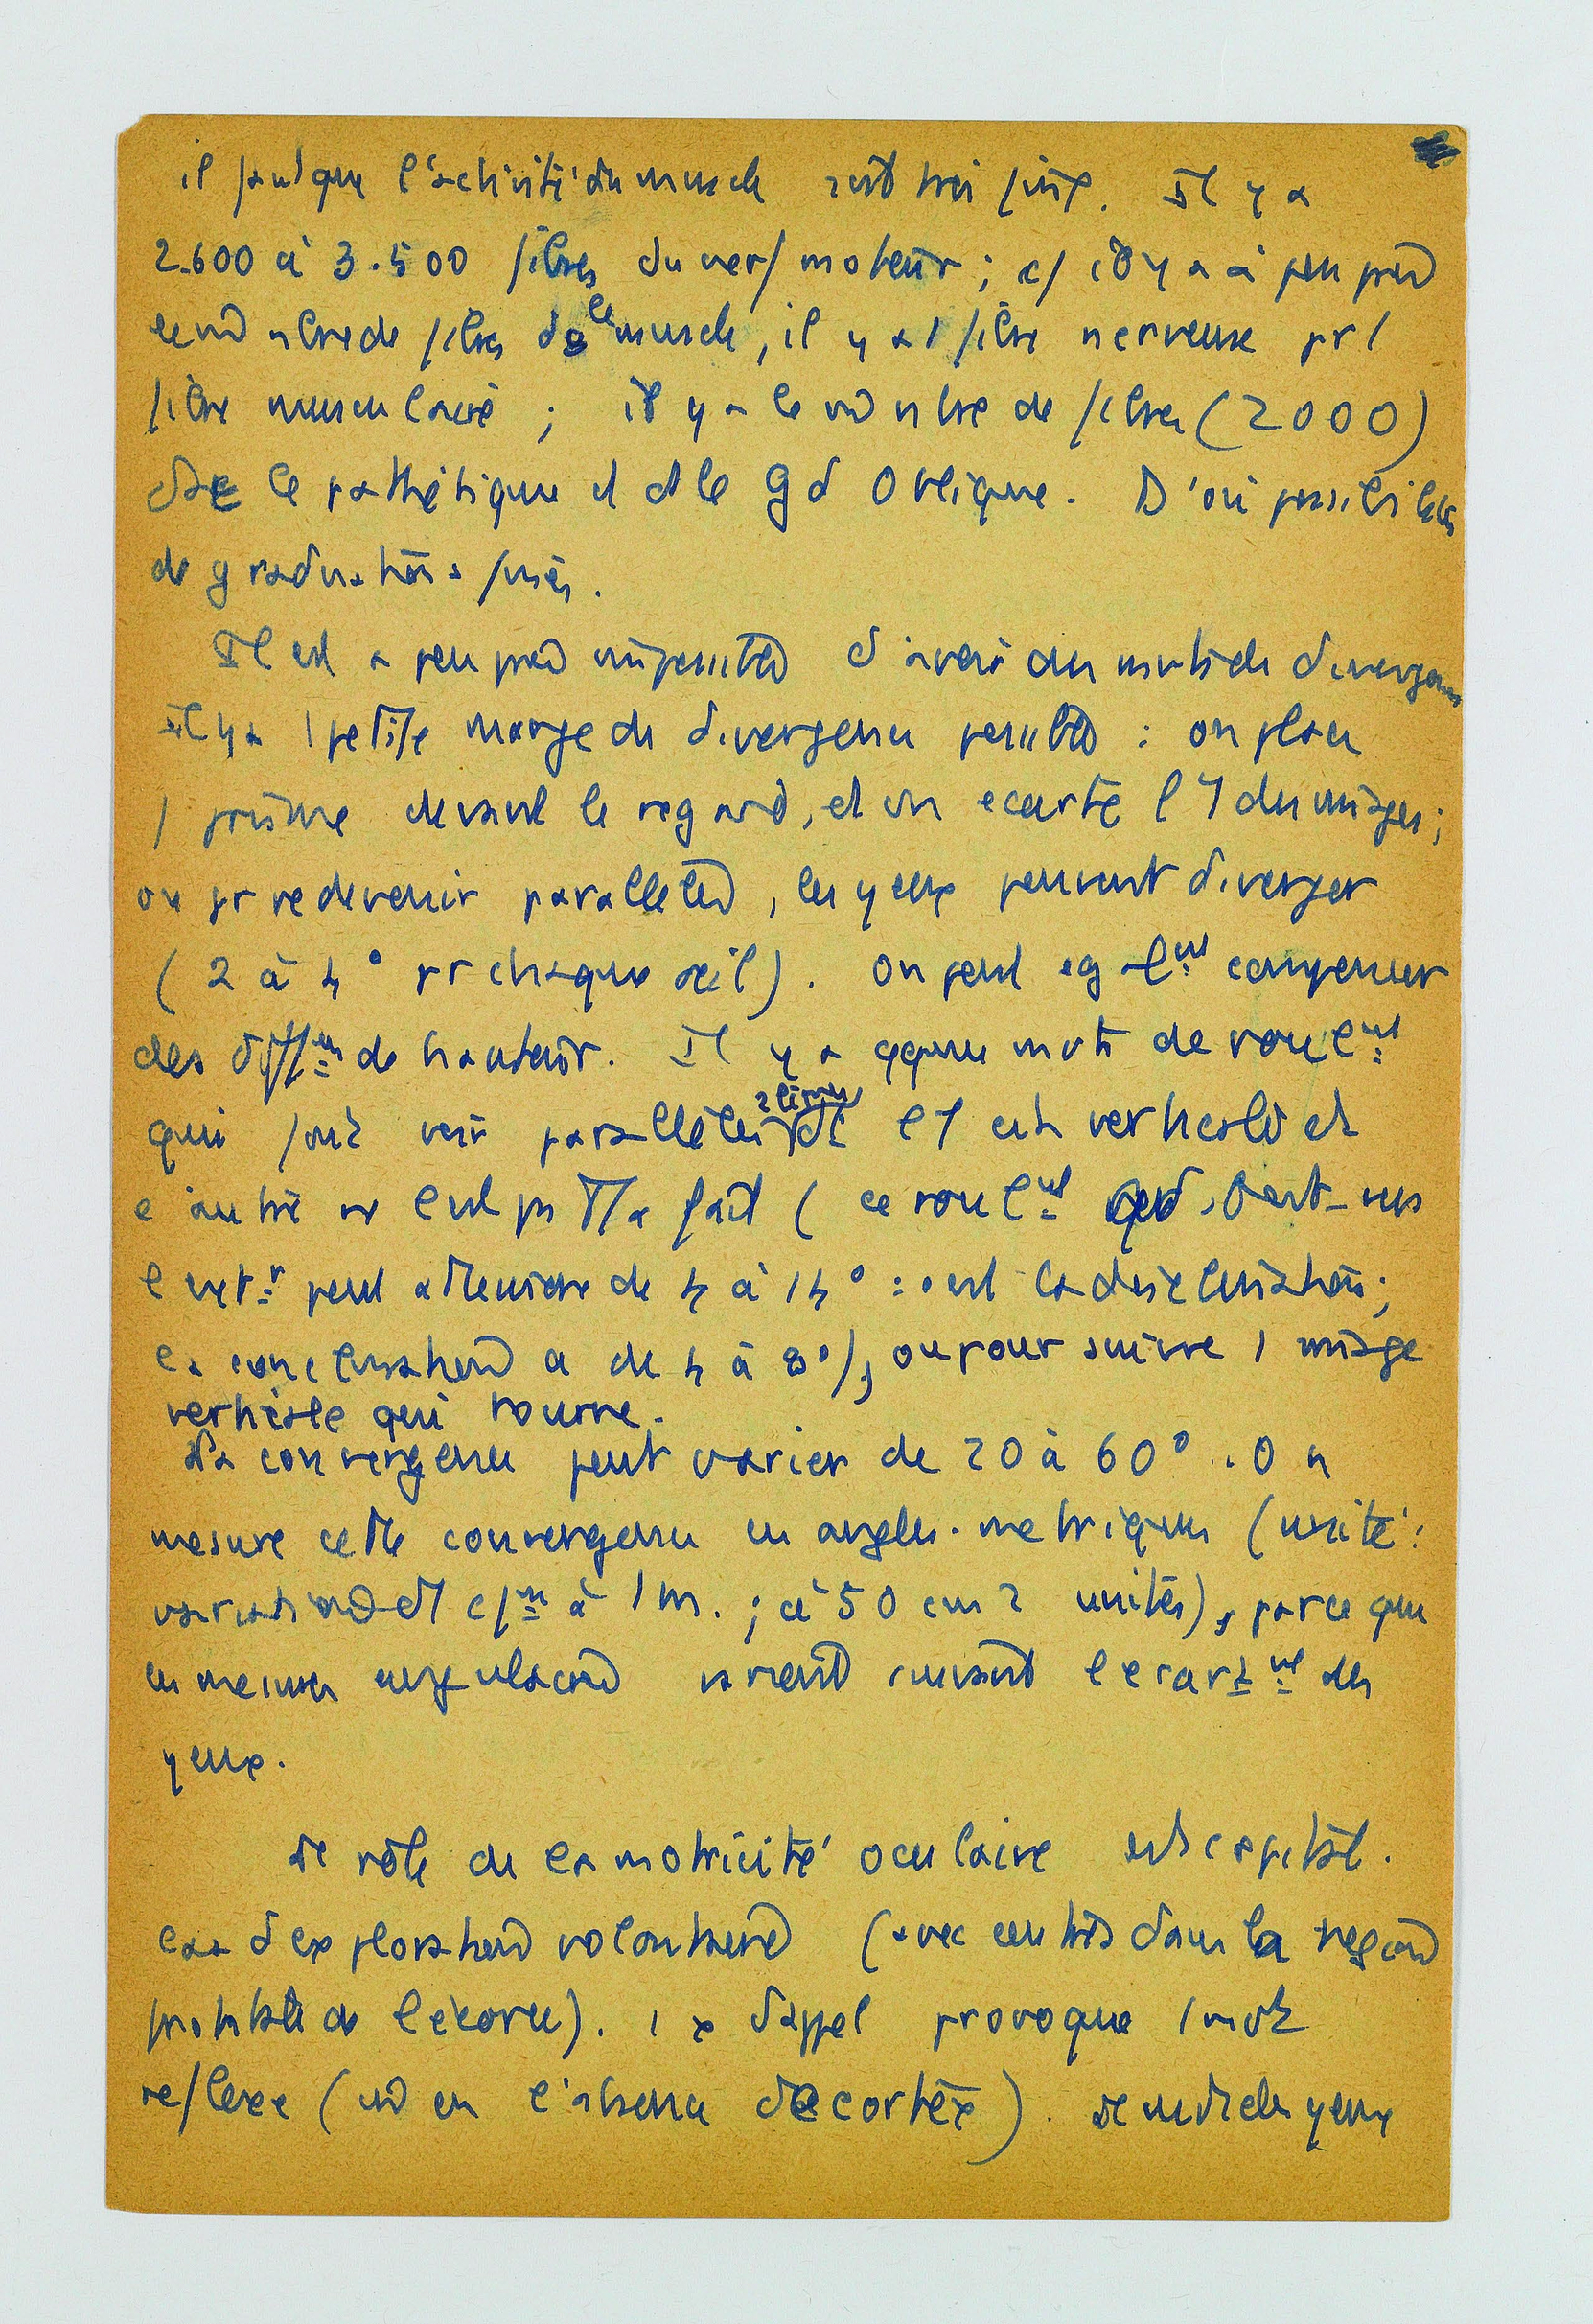 il faut que l'activité du muscle soit très fine. Il y a
2.600 à 3.500 fibres du nerf moteur ; cf il y a à peu près
le m̂ nbre de fibres ds le muscle, il y a 1 fibre nerveuse pr 1
fibre musculaire ; il y a le m̂ nbre de fibres (2000)
ds le pathétique et ds le gd Oblique. D'où possibilités
de graduations fines.
Il est à peu près impossible d'avoir des mvts de divergence
Il y a 1 petite marge de divergence possible : on place
1 prisme devant le regard, et on écarte l'1 des images ;
ou pr redevenir parallèles, les yeux peuvent diverger
(2 à 4° pr chaque œil). On peut eg almt compenser
des difféces de hauteur. Il y a qques mvts de roulmt
qui font voir parallèles 2 lignes dt l'1 est verticale et
l'autre ne l'est ps tt a fait (ce roulmt vers
l'extr peut atteindre de 4 à 14° : c'est la disclination ;
la conclination a de 4 à 8°), ou pour suivre 1 image
verticale qui tourne.
La convergence peut varier de 20 à 60°. On
mesure cette convergence en angles métriques (unité :
à 1 m. ; à 50 cm 2 unités), parce que
les mesures angulaires varient suivant l'écartmt des
yeux.
Le rôle de la motricité oculaire est capital.
d'exploration volontaire (avec centres dans la région
frontale de l'écorce). 1 x d'appel provoque 1 mvt
réflexe (m̂ en l'absence de cortex). Le mvt des yeux